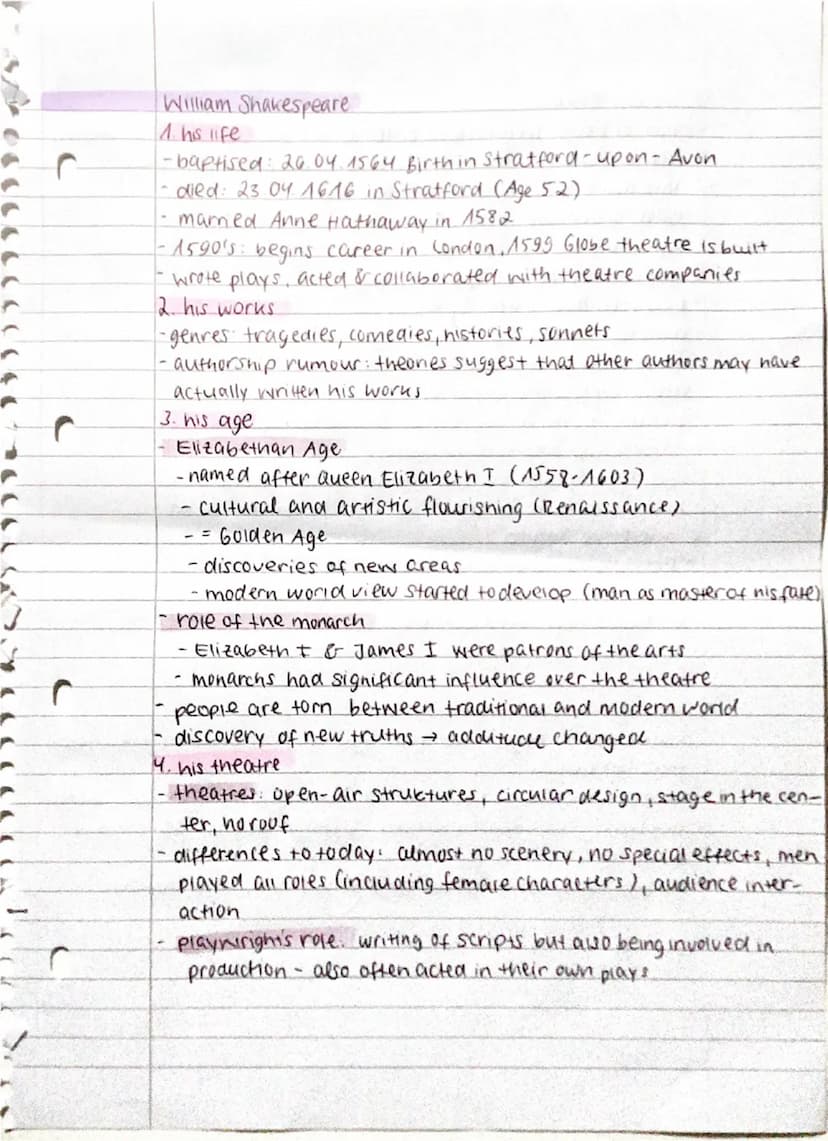 William Shakespeare
1. his life
- baptised: 26 04 1564 Birth in Stratford-upon-Avon
- died: 23 04 1616 in Stratford (Age 52)
- married Anne Hathaway in 1582
- 1590's: begins career in London, 1599 Globe theatre is built
- wrote plays, acted & collaborated with theatre companies
2. his works
- genres: tragedies, comedies, histories, sonnets
- authorship rumour: theories suggest that other authors may have
actually written his works
3. his age
- Elizabethan Age
- named after Queen Elizabeth I (1558-1603)
- cultural and artistic flourishing (Renaissance)
- = Golden Age
- discoveries of new areas
- modern world view started to develop (man as master of his fate)
- role of the monarch
- Elizabeth I & James I were patrons of the arts
- monarchs had significant influence over the theatre
- people are torn between traditional and modern world
- discovery of new truths → additude changed
4. his theatre
- theatres: open-air struktures, circular design, stage in the cen-
ter, no roof
- differences to today: almost no scenery, no special effects, men
played all roles (including female characters), audience inter-
action
- playwrigh's role: writing of scripts but also being involved in
production - also often acted in their own plays